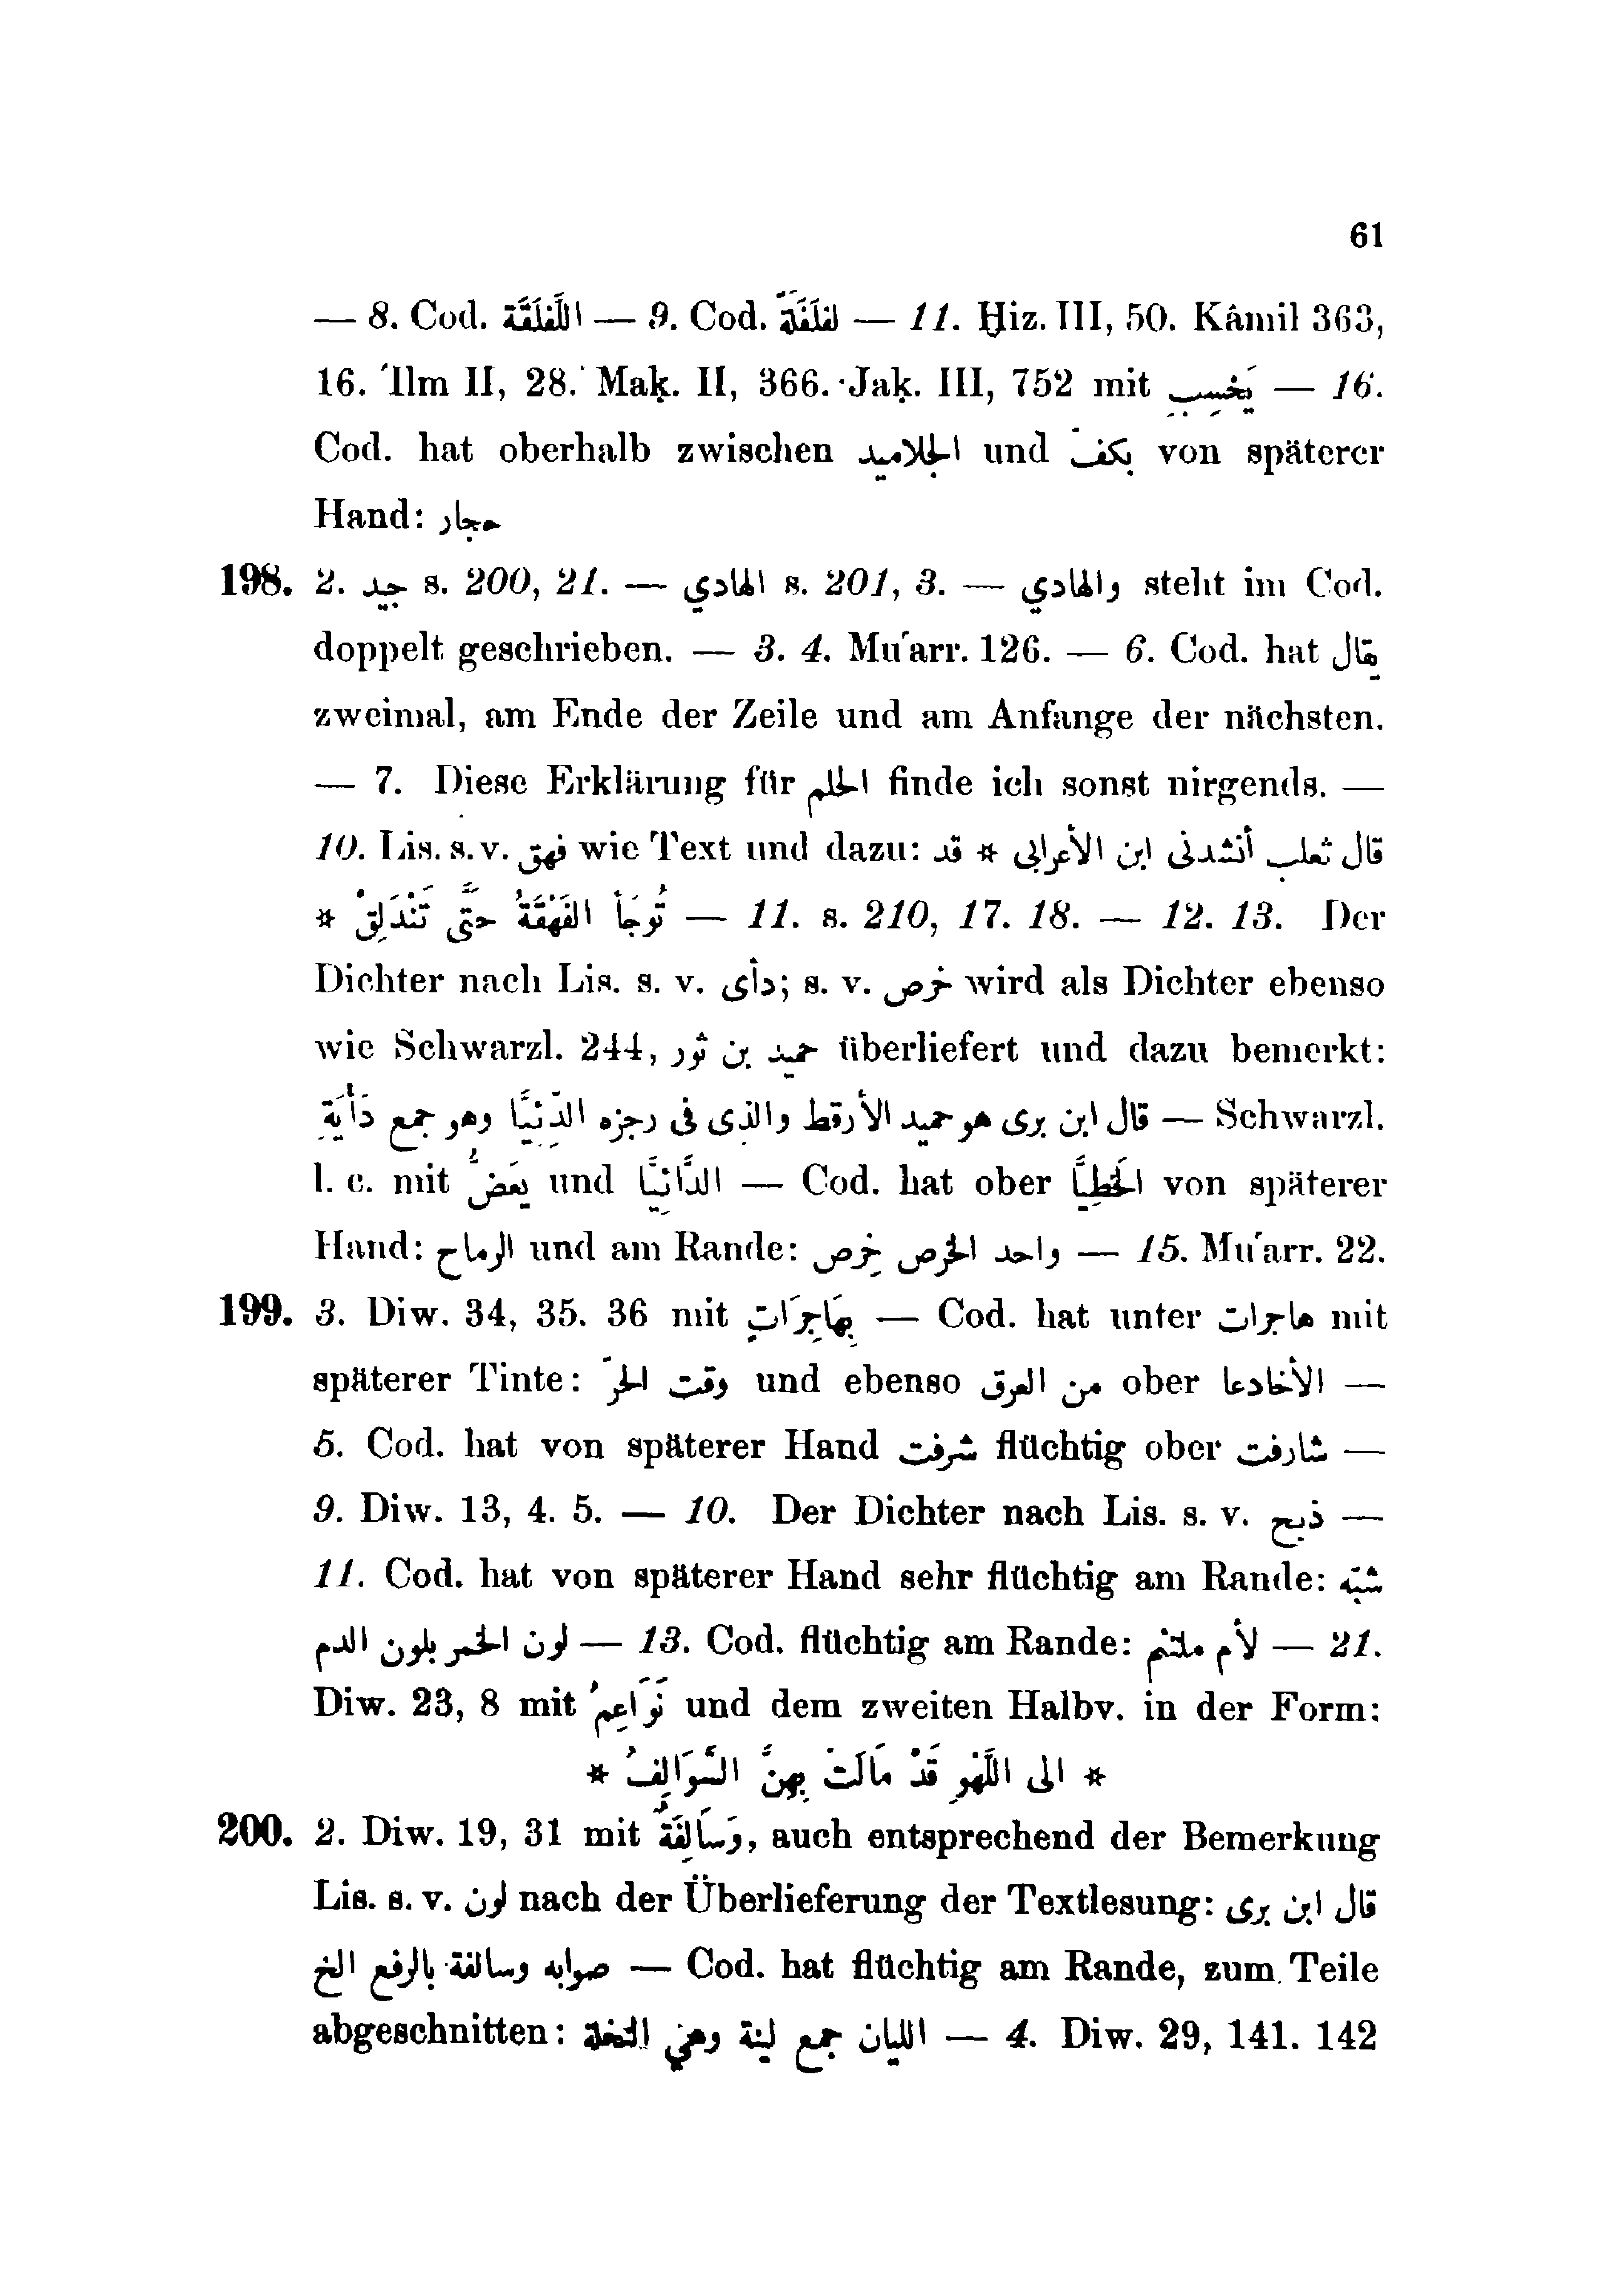 61
— 8. Cod. اللَّفَلَقَّة — 9. Cod. لفلَقَة — 11. Ḫiz. III, 50. Kâmil 363,
16. ʿIlm II, 28. Maḳ. II, 366. Jaḳ. III, 752 mit يَخْسِبِ — 16.
Cod. hat oberhalb zwischen الجلاميد und بكفّ von späterer
Hand: حجار
198. 2. جيد s. 200, 21. — الهادي s. 201, 3. — والهادي steht im Cod.
doppelt geschrieben. — 3. 4. Muʿarr. 126. — 6. Cod. hat يقال
zweimal, am Ende der Zeile und am Anfange der nächsten.
— 7. Diese Erklärung für الحلم finde ich sonst nirgends. —
10. Lis. s. v. فهق wie Text und dazu: قال ثعلب أنشدنى ابن الأعرابى * قد
تُوجَأُ الفَهْقَةُ حتَّى تَنْدَلِقْ * — 11. s. 210, 17. 18. — 12. 13. Der
Dichter nach Lis. s. v. دأى; s. v. خرص wird als Dichter ebenso
wie Schwarzl. 244, حميد بن ثور überliefert und dazu bemerkt:
قال ابن برى هو حميد الأرقط والذى فى رجزه الدَّئِيَّا وهو جمع دَأْيَة — Schwarzl.
l. c. mit يَعَضُّ und الدَّأيِيَّا — Cod. hat ober الخَطِيَّا von späterer
Hand: الرماح und am Rande: واحد الخرص خِرص — 15. Muʿarr. 22.
199. 3. Diw. 34, 35. 36 mit بِهَاجِرَاتٍ — Cod. hat unter هاجرات mit
späterer Tinte: وقت الحرّ und ebenso من العرق ober الأخادعا —
5. Cod. hat von späterer Hand شرفت flüchtig ober شارفت —
9. Diw. 13, 4. 5. — 10. Der Dichter nach Lis. s. v. ذبح —
11. Cod. hat von späterer Hand sehr flüchtig am Rande: شبّه
لون الخمر بلون الدم — 13. Cod. flüchtig am Rande: لأم ملتئم — 21.
Diw. 23, 8 mit نَوَاعِمُ und dem zweiten Halbv. in der Form:
* الى اللَّهْوِ قَدْ مَالَتْ بِهِنَّ السَّوَالِفُ *
200. 2. Diw. 19, 31 mit وَسَالِفَةٌ, auch entsprechend der Bemerkung
Lis. s. v. لون nach der Überlieferung der Textlesung: قال ابن برى
صوابه وسالفة بالرفع الخ — Cod. hat flüchtig am Rande, zum Teile
abgeschnitten: الليان جمع لينة وهي النخلة — 4. Diw. 29, 141. 142